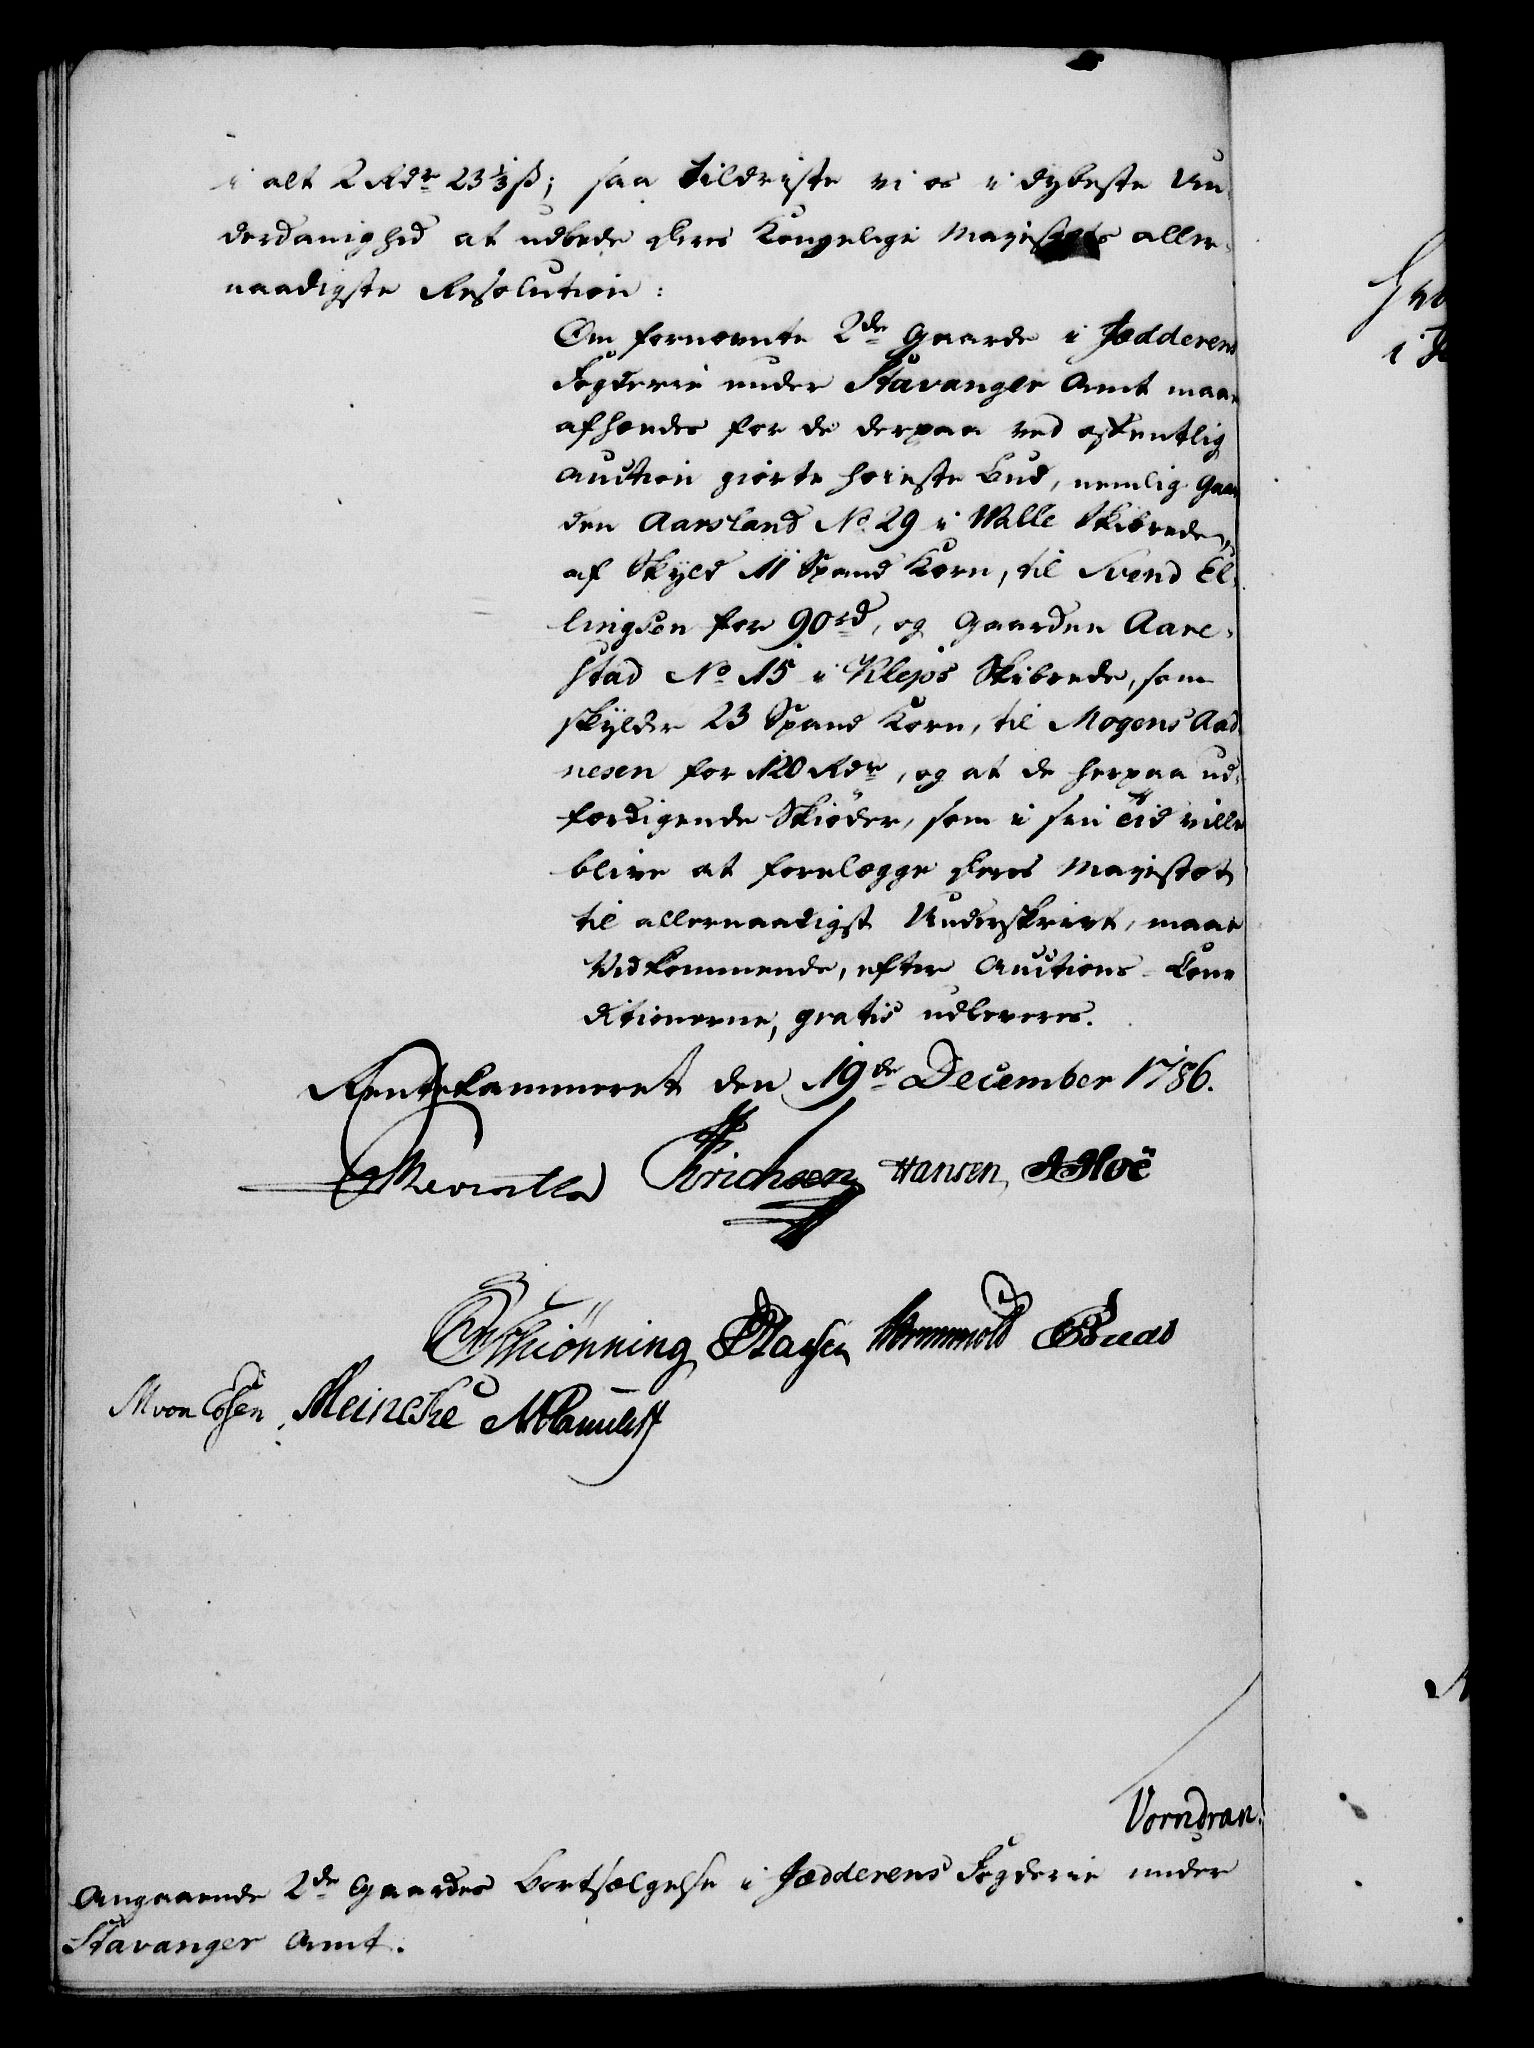 i alt 2 Rdr 23 1/3 ß; saa tildriste vi os i dybeste Un-
derdanighed at udbede Deres Kongelige Majestæts aller-
naadigste Resolution:
Om fornævnte 2de Gaarde i Jædderens
Fogderie under Stavanger Amt maae
afhændes for de derpaa ved offentlig
Auction giorte høieste Bud, nemlig Gaar
den Aarsland No 29 i Walle Skibrede,
af Skyld 11 Spand Korn, til Svend El-
lingsen for 90 rd, og Gaarden Aare-
stad No 15 i Klejps Skibrede, som
skylder 23 Spand Korn, til Mogens Aad
nesen for 120 Rdr, og at de herpaa ud-
færdigende Skiøder, som i sin Tid ville
blive at forelægge Deres Majestæt
til allernaadigst Underskrivt, maae
Vedkommende, efter Auctions-Con
ditionerne, gratis udleveres.
Rentekammeret den 19de December 1786.
Erichsen Hansen
Schiönning Wormskiold
M von Essen Meincke
Vorndran.
Angaaende 2de Gaardes Bortsælgelse i Jædderens Fogderie under
Stavanger Amt.